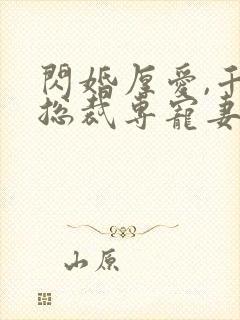 閃婚厚愛,千
總裁專寵妻
山原